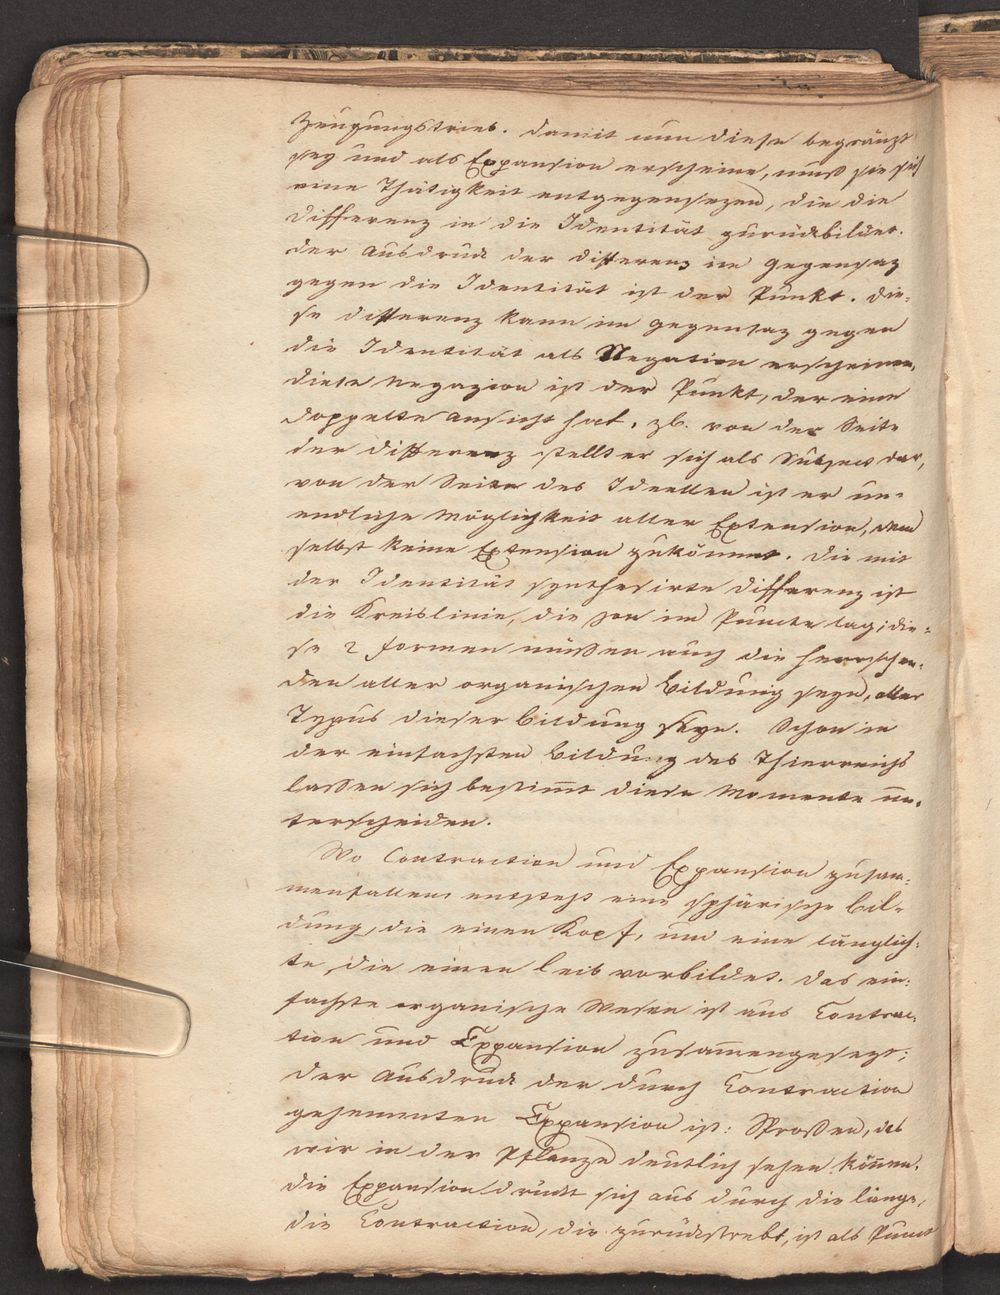 Zeugungstrieb. Damit nun diese begränzt
sey und als Expansion erscheine, muß sie sich
eine Thätigkeit entgegensezen, die die
Differenz in die Identität zurückbildet.
Der Ausdruck der Differenz im Gegensaz
gegen die Identität ist der Punkt. Die¬
se Differenz kann im Gegensaz gegen
die Identität als Negation erscheinen,
diese Negazion ist der Punkt, der eine
doppelte Ansicht hat, zb. von der Seite
der Differenz stellt er sich als Subject dar,
von der Seite des Ideellen ist er un¬
endliche Möglichkeit aller Extension, dem
selbst keine Extension zukömmt. Die mit
der Identität synthesirte Differenz ist
die Kreislinie, die schon im Puncte lag; die¬
se 2 Formen müßen auch die herrschen¬
den aller organischen Bildung seyn, aller
Typus dieser Bildung seyn. Schon in
der einfachsten Bildung des Thierreichs
laßen sich bestimt diese Momente un¬
terscheiden.
Wo Contraction und Expansion zusam¬
menfallen, entsteht eine sphärische Bil¬
dung, die einen Kopf, und eine länglich¬
te, die einen Leib vorbildet. Das ein¬
fachste organische Wesen ist aus Contrac¬
tion und Expansion zusamengesezt:
Der Ausdruck der durch Contraction
gehemmten Expansion ist: Sproßen, das
wir in der Pflanze deutlich sehen könen.
Die Expansion drückt sich aus durch die Länge,
die Contraction, die zurückstrebt, ist als Punct